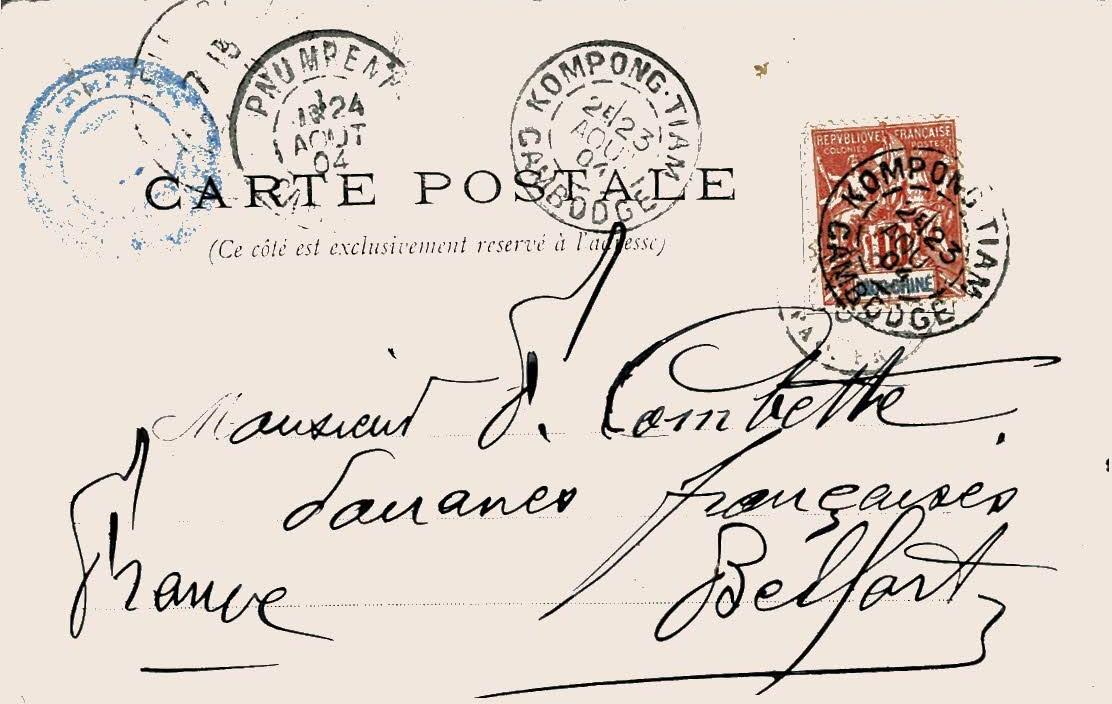 PNUMPENH
1E/24
AOUT
04
KOMPONG-TIAM
2E/23
AOUT
04
CAMBODGE
REPUBLIQUE FRANÇAISE
COLONIES POSTES
10
INDO-CHINE
KOMPONG-TIAM
2E/23
AOU
04
CAMBODGE
CARTE POSTALE
(Ce côté est exclusivement reservé à l'adresse)
Monsieur J. Combette
douanes françaises
Belfort
France